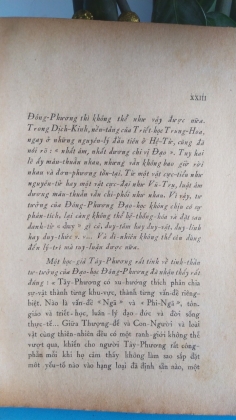 XXIII
Đông-Phương thì không thể như vậy được nữa.
Trong Dịch-Kinh, nền-tảng của Triết học Trung-Hoa,
ngay ở những nguyên-lý đầu tiên ở Hệ-Từ, cũng đã
nói rõ: « nhất âm, nhất dương chi vị Đạo ». Tuy hai
lẽ ấy mâu-thuẫn nhau, nhưng vẫn không bao giờ rời
nhau và đơn-phương tồn-tại. Từ một vật cực-tiểu như
nguyên-tử hay một vật cực-đại như Vũ-Trụ, luật âm
dương mâu-thuẫn vẫn chi-phối như nhau. Vì vậy, tư
tưởng của Đông-Phương Đạo-học không chịu có sự
phân-tích, lại càng không thể hệ-thống-hóa và đặt cho
danh-từ « duy » gì cả, duy-tâm hay duy-vật, duy linh
hay duy-thức v.v... Và dĩ nhiên không thể nên dùng
đến lý-trí mà suy-luận được nữa.
Một học-giả Tây-Phương rất tinh về tinh-thần
tư-tưởng của Đạo-học Đông-Phương đã nhận thấy rất
đúng : « Tây-Phương có xu-hướng thích phân chia
sự-vật thành từng khu-vực, thành từng vấn-đề riêng-
biệt. Nào là vấn-đề « Ngã » và « Phi-Ngã », tôn-
giáo và triết-học, luân-lý đạo-đức và đời sống
thực-tế... Giữa Thượng-đế và Con Người và loài
vật cùng thiên-nhiên đều có một ranh-giới không thể
vượt qua, khiến cho người Tây-Phương rất công-
phẫn mỗi khi họ cảm thấy không làm sao sắp đặt
một yếu-tố nào vào hạng loại đã định sẵn nào, một